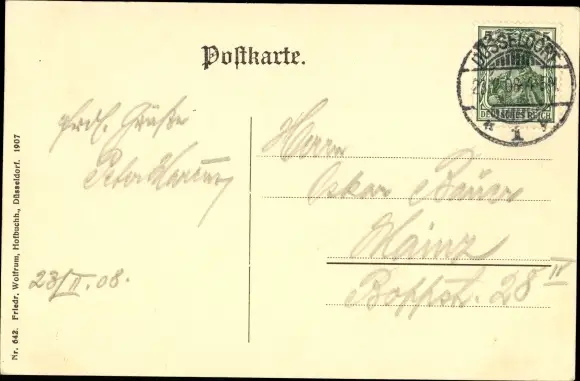 Postkarte.
DÜSSELDORF
1
DEUTSCHES REICH
frdl. Grüße
Peter
23/II.08.
Herrn
Oskar Bauer
Mainz
Boppstr. 28 IV
Nr. 642. Friedr. Wolfrum, Hofbuchh., Düsseldorf. 1907